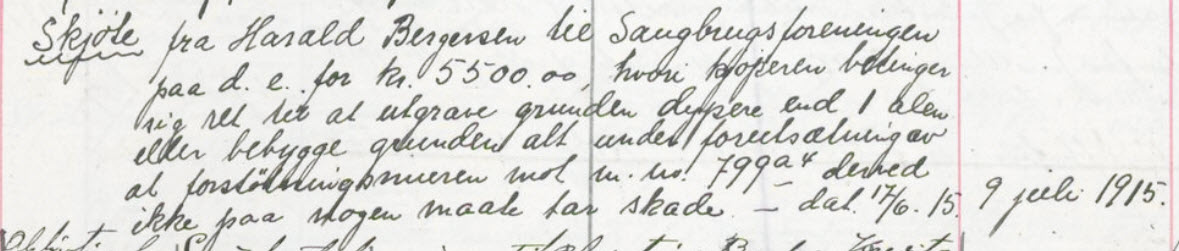 Skjøte fra Harald Bergersen til Saugbrugsforeningen
paa d. e. for kr. 5500.00, hvori kjøperen betinger
sig ret til at utgrave grunden dypere end 1 alen
eller bebygge grunden alt under forutsætning av
at forstøtningsmuren mot m. no. 799a4 derved
ikke paa nogen maate tar skade – dat. 17/6. 15. 9 juli 1915.